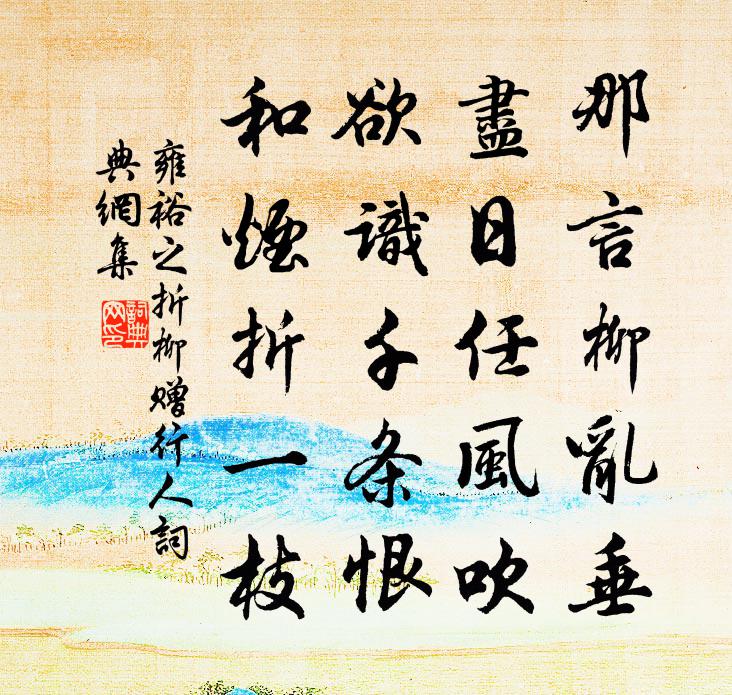 那言柳亂垂
盡日任風吹
欲識千条恨
和煙折一枝
雍裕之折柳赠行人詞
典網集
詞典
网印